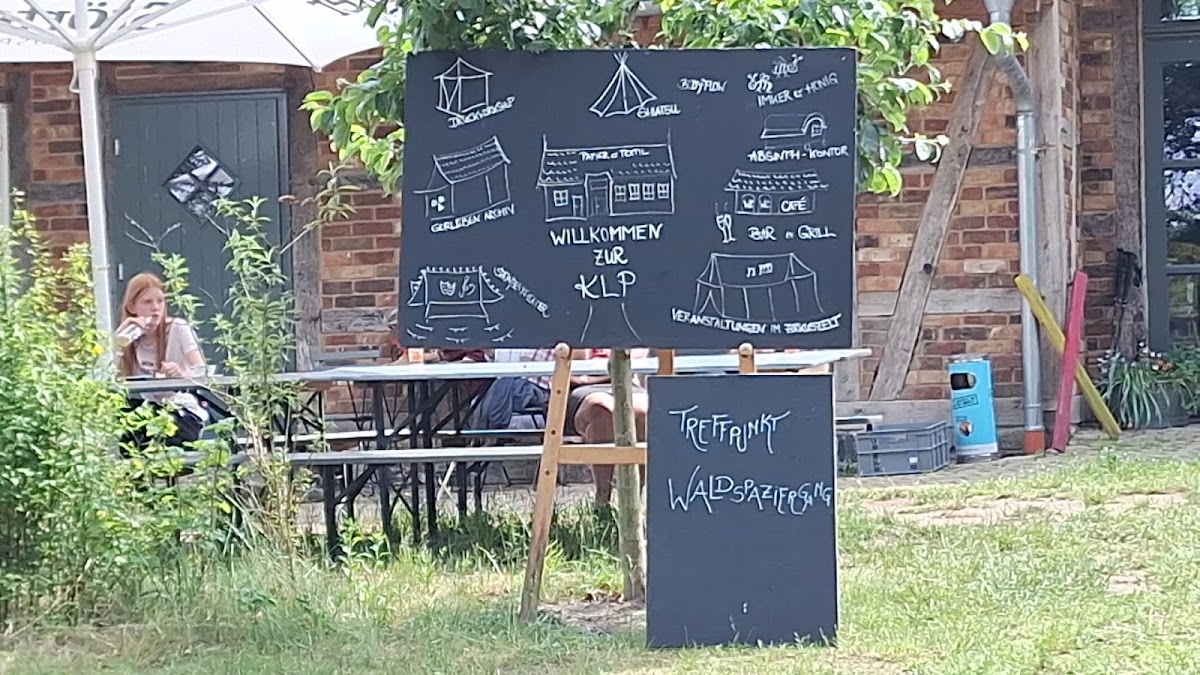 SHIATSU
BODYFLOW
IMKER & HONIG
ABSINTH-KONTOR
GORLEBEN ARCHIV
PAPIER & TEXTIL
CAFÉ
BAR & GRILL
WILLKOMMEN
ZUR
KLP
VERANSTALTUNGEN IM ZIRKUSZELT
TREFFPUNKT
WALDSPAZIERGANG